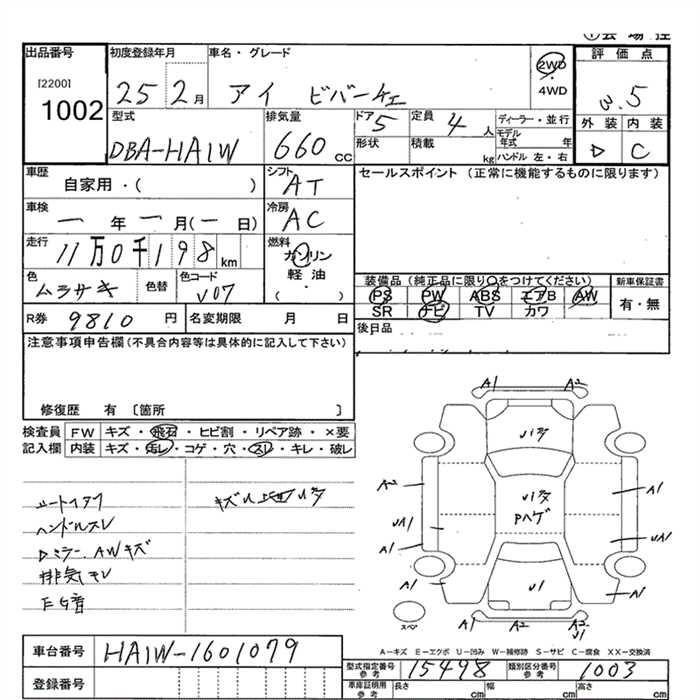 出品番号 初度登録年月 車名・グレード 評価点
[2200] 2WD
1002 25 2月 アイ ビバーチェ ・ 3.5
4WD
型式 排気量 ドア 5 定員 4人 ディーラー・並行 外装 内装
DBA-HA1W 660 cc 形状 積載 kg モデル年式 年 D C
ハンドル 左・右
車歴 シフト セールスポイント (正常に機能するものに限ります)
自家用・( ) AT
車検 冷房
一 年 一 月(一 日) AC
走行 燃料
11万0千198km ガソリン
色 色替 色コード 軽油 装備品 (純正品に限り○をつけてください) 新車保証書
ムラサキ V07 ( ) PS PW ABS エアB AW 有・無
R券 9810 円 名変期限 月 日 SR ナビ TV カワ
後日品
注意事項申告欄(不具合内容等は具体的に記入して下さい)
修復歴 有 〔箇所 〕
検査員 FW キズ・飛石・ヒビ割・リペア跡・×要
記入欄 内装 キズ・汚レ・コゲ・穴・スレ・キレ・破レ
A1 A2
ハンドルスレ
Dミラー.AWキズ
A2 A1
UA1 UA1
A1
A1 A1
U1
A1 A2 A2
U1
A-キズ E-エクボ U-凹み W-補修跡 S-サビ C-腐食 XX-交換済
車台番号 HA1W-1601079
型式指定番号 参考 15498 類別区分番号 参考 1003
登録番号 車庫証明用 参考 長さ cm 幅 cm 高さ cm